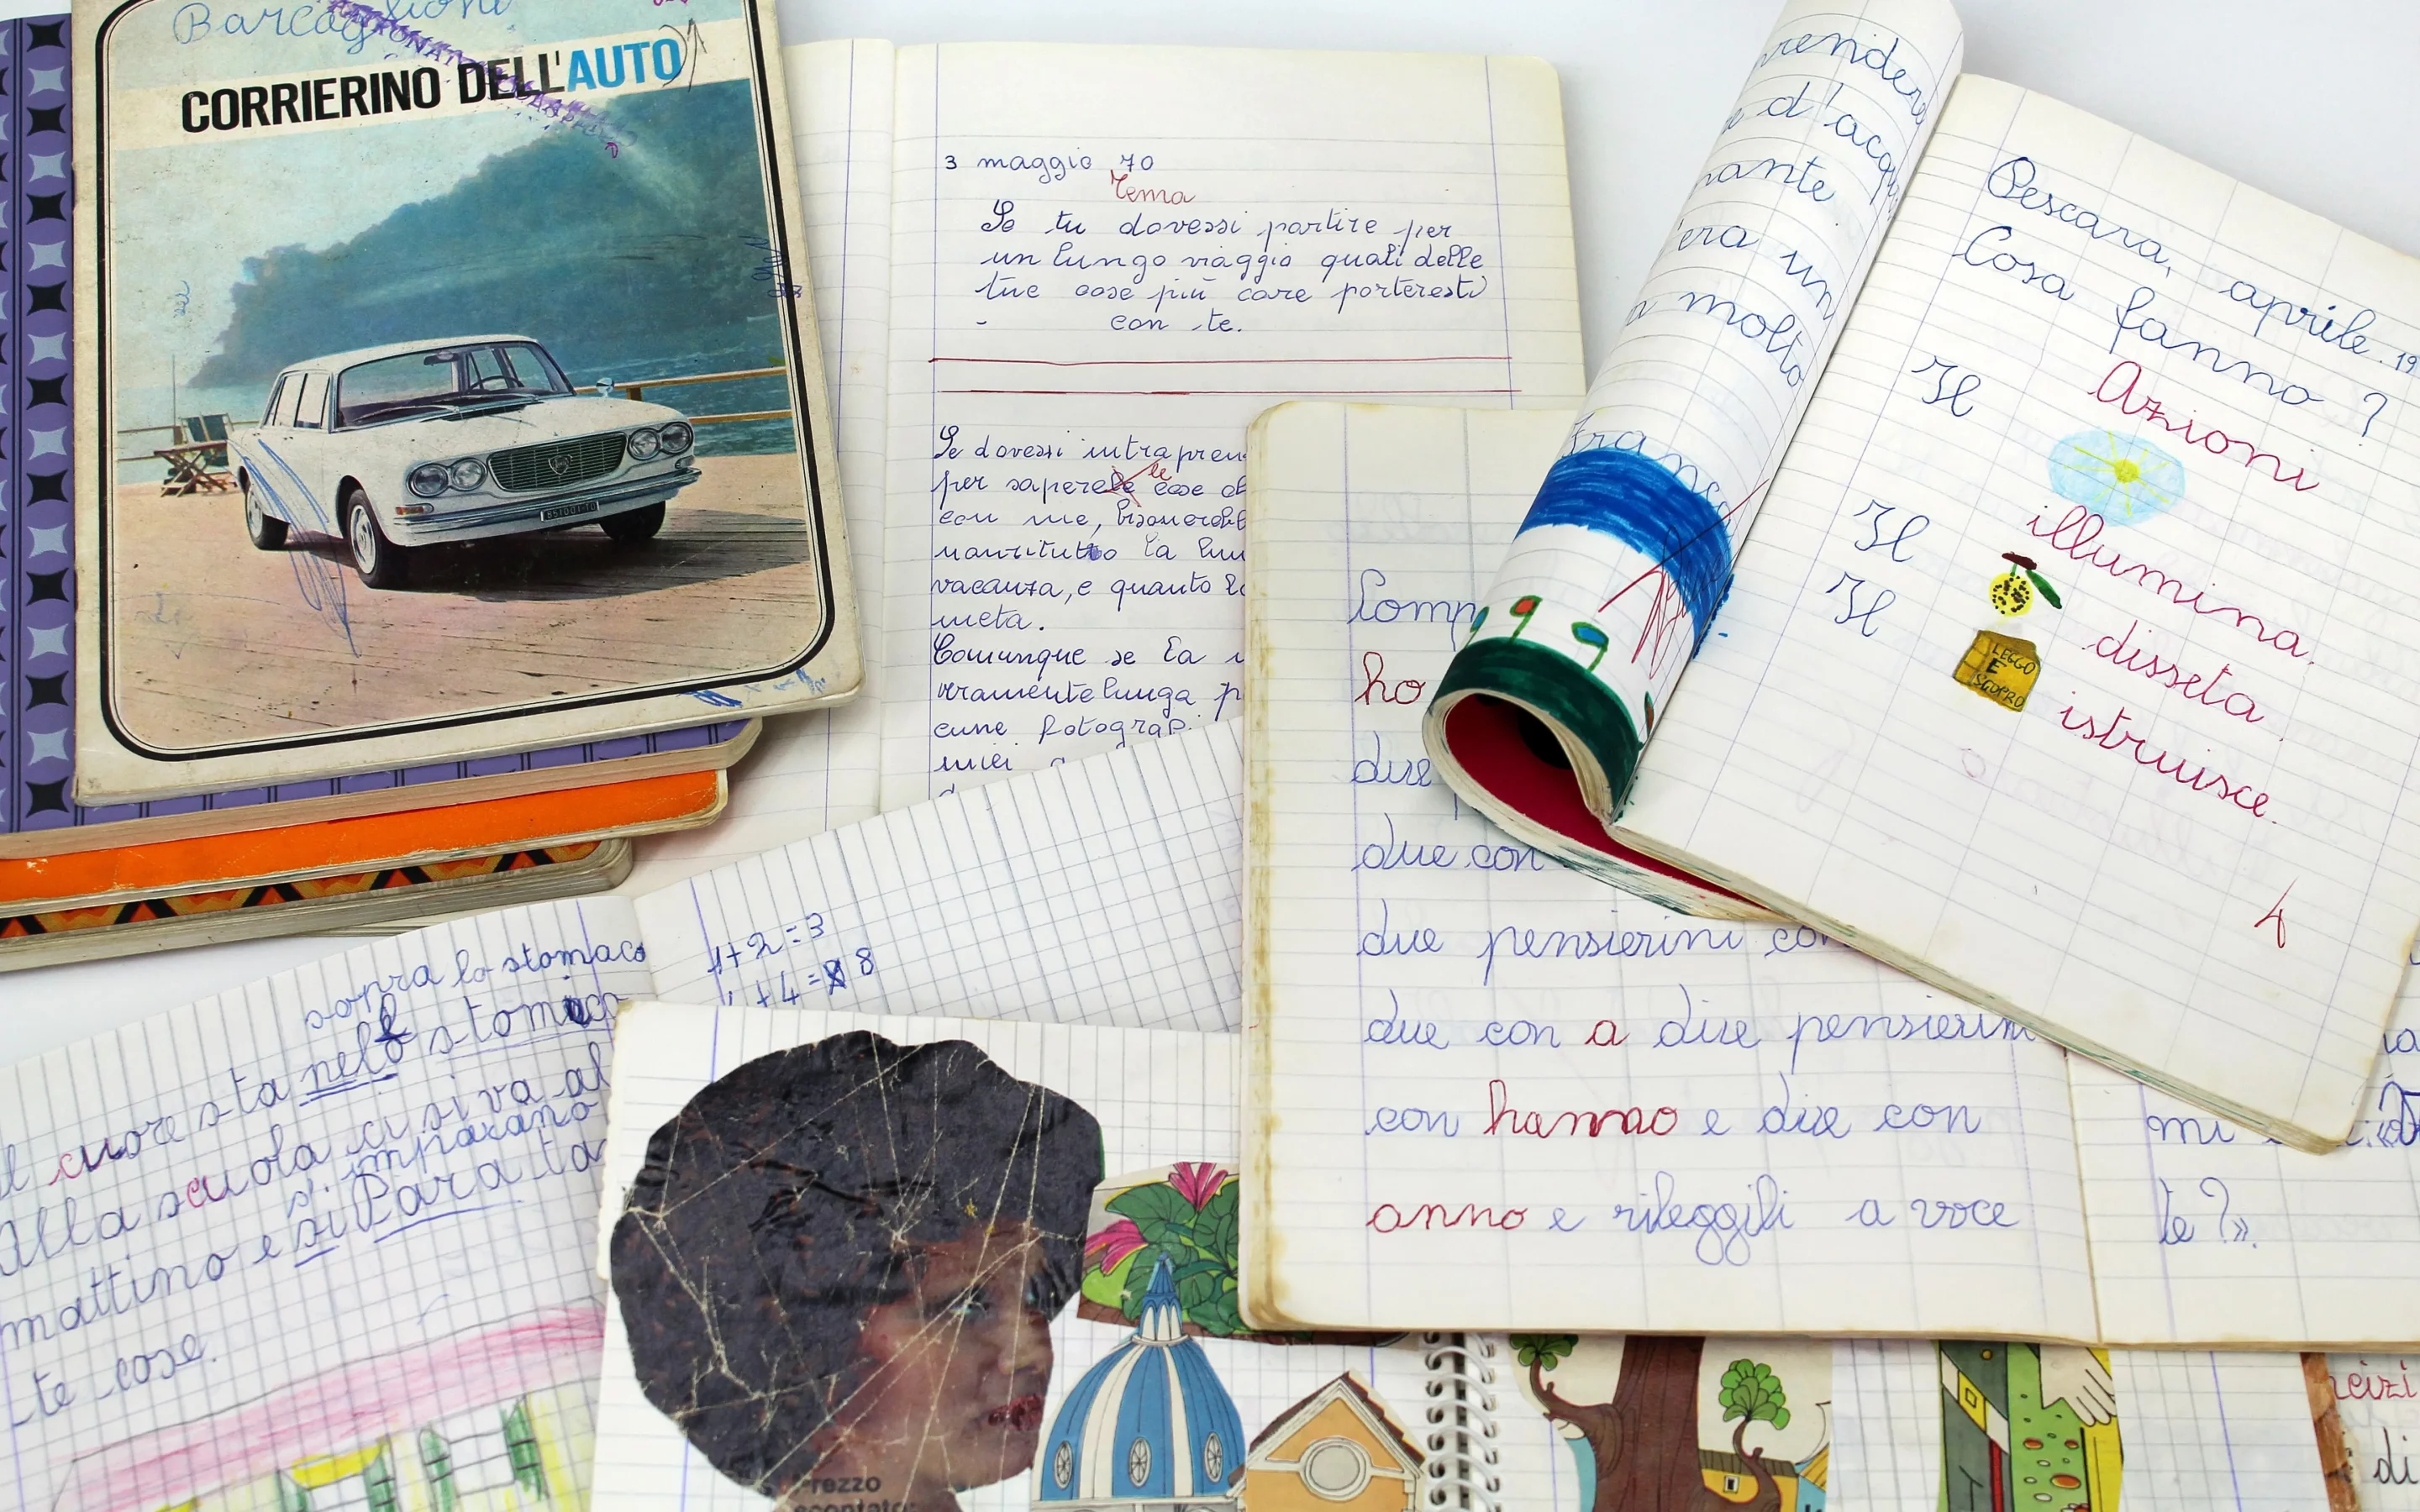 Barcaglioni
CORRIERINO DELL'AUTO
3 maggio 70
Tema
Se tu dovessi partire per
un lungo viaggio quali delle
tue cose più care porteresti
- con te.
Se dovessi intrapren
per sapere le cose
con me,
la lun
vacanza, e quanto
meta.
Comunque se la
veramente lunga p
cune fotograp
miei
rendere
d'acqu
nante
era un
molto
Pescara, aprile. 19
Cosa fanno?
Azioni
Il
illumina.
Il
disseta.
Il
LEGGO
E
SCOPRO
istruisce.
4
Comp
ho
due
due con
due pensierini con
due con a due pensierini
con hanno e due con
anno e rileggili a voce
mi
te?».
1+2=3
+4= 8
sopra lo stomaco
Il cuore sta nello stomaco
Alla scuola ci si va al
s'imparano
mattino e si Para ta
te cose.
Prezzo
scontato:
di